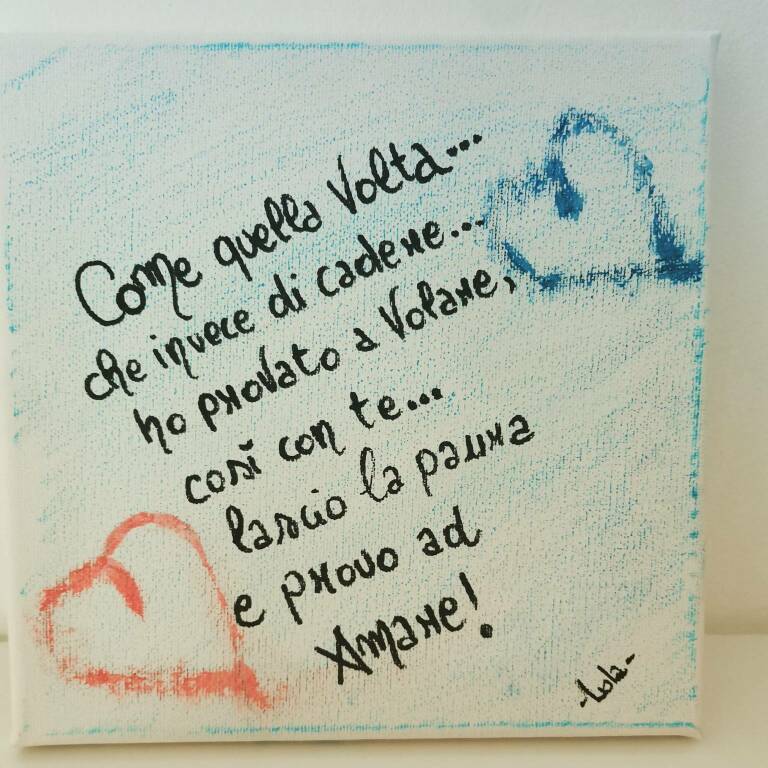 Come quella Volta...
che invece di cadere...
ho provato a Volare,
così con te...
lascio la paura
e provo ad
Amare!
-Lola-